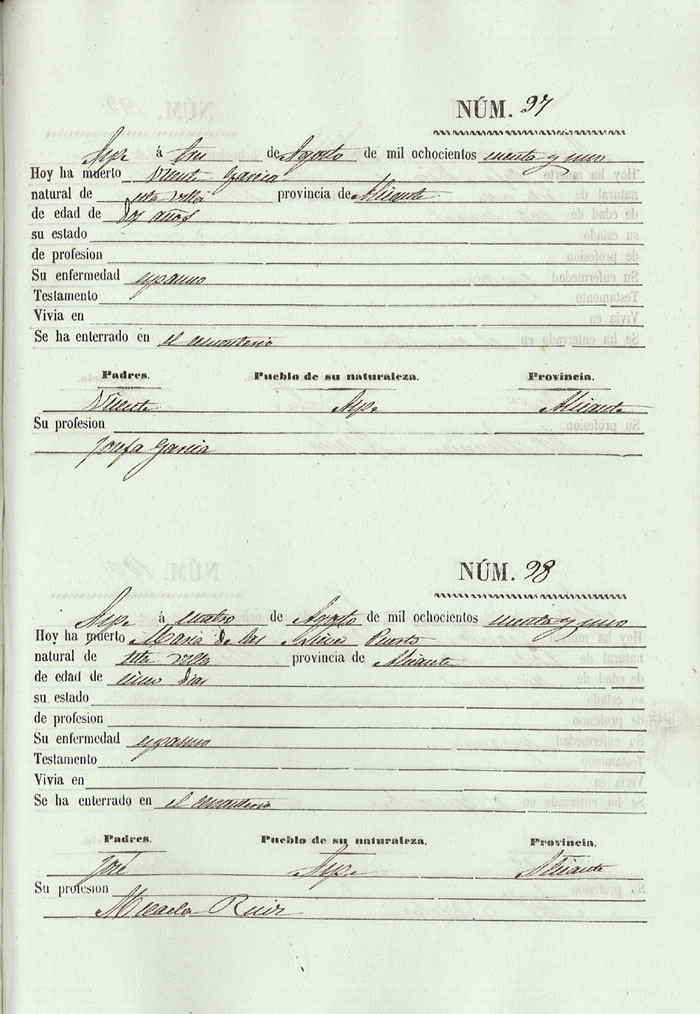 NÚM. 97
Aspe á tres de Agosto de mil ochocientos cuarenta y uno
Hoy ha muerto Vicente Garcia
natural de esta villa provincia de Alicante
de edad de años
su estado
de profesion
Su enfermedad espasmo
Testamento
Vivia en
Se ha enterrado en el cementerio
Padres. Pueblo de su naturaleza. Provincia.
Vicente Aspe Alicante
Su profesion
Josefa Garcia
NÚM. 98
Aspe á cuatro de Agosto de mil ochocientos cuarenta y uno
Hoy ha muerto Maria de las Nieves Puerto
natural de esta villa provincia de Alicante
de edad de cinco dias
su estado
de profesion
Su enfermedad espasmo
Testamento
Vivia en
Se ha enterrado en el cementerio
Padres. Pueblo de su naturaleza. Provincia.
José Aspe Alicante
Su profesion
Micaela Ruiz